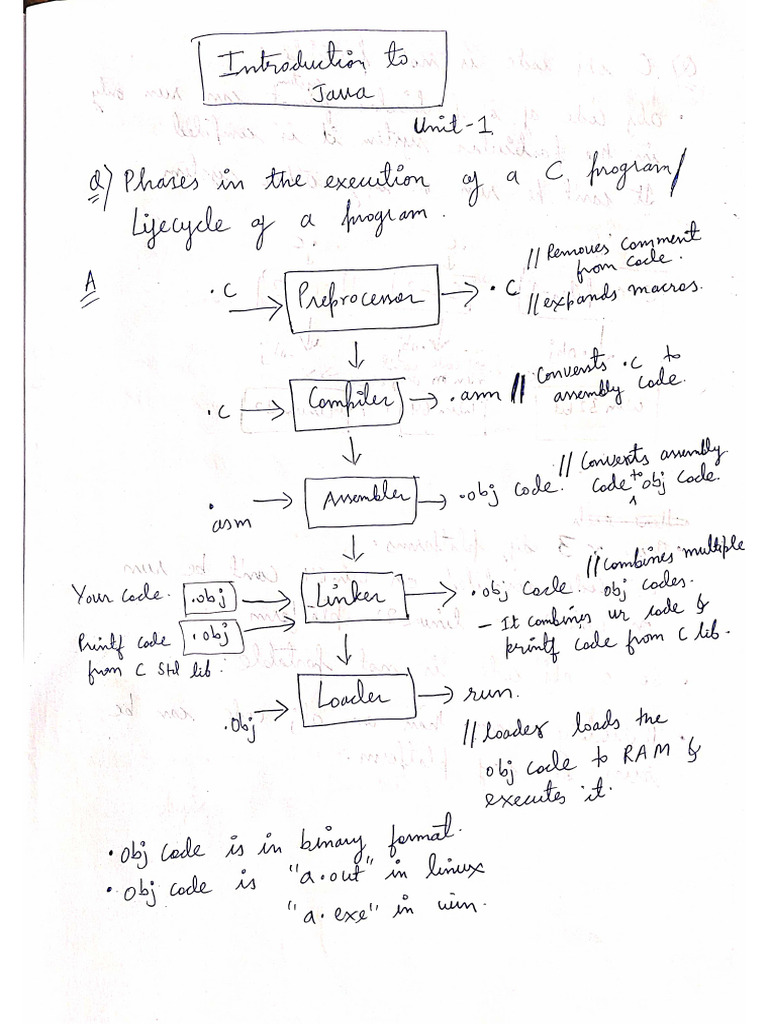 Introduction to
Java
Unit-1
Q) Phases in the execution of a C program/
Lifecycle of a program.
A
.C → Preprocessor → .C // Removes comment
from code.
// expands macros.
.C → Compiler → .asm // Converts .C to
assembly code.
.asm → Assembler → .obj code. // Converts assembly
code to obj code.
Your code. .obj → Linker → .obj code. // combines multiple
obj codes.
Printf code .obj
from C Std lib.
- It combines ur code &
printf code from C lib.
.obj → Loader → run.
// loader loads the
obj code to RAM &
executes it.
• obj code is in binary format.
• obj code is "a.out" in linux
"a.exe" in win.